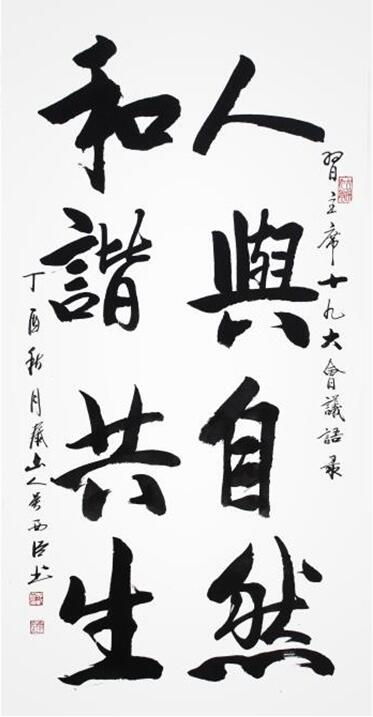 習主席十九大會議語录
人與自然
和諧共生
丁酉秋月藤山人吴西臣书